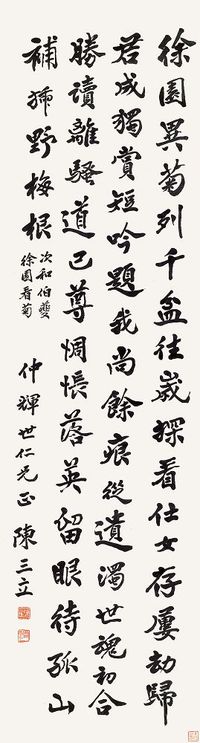 徐園異菊列千盆往歲探看仕女存屢劫歸
君成獨賞短吟題我尚餘痕從遺濁世魂初合
勝讀離騷道已尊惆悵落英留眼待孤山
補野梅根
次和伯夔
徐園看菊
仲輝世仁兄正 陳三立